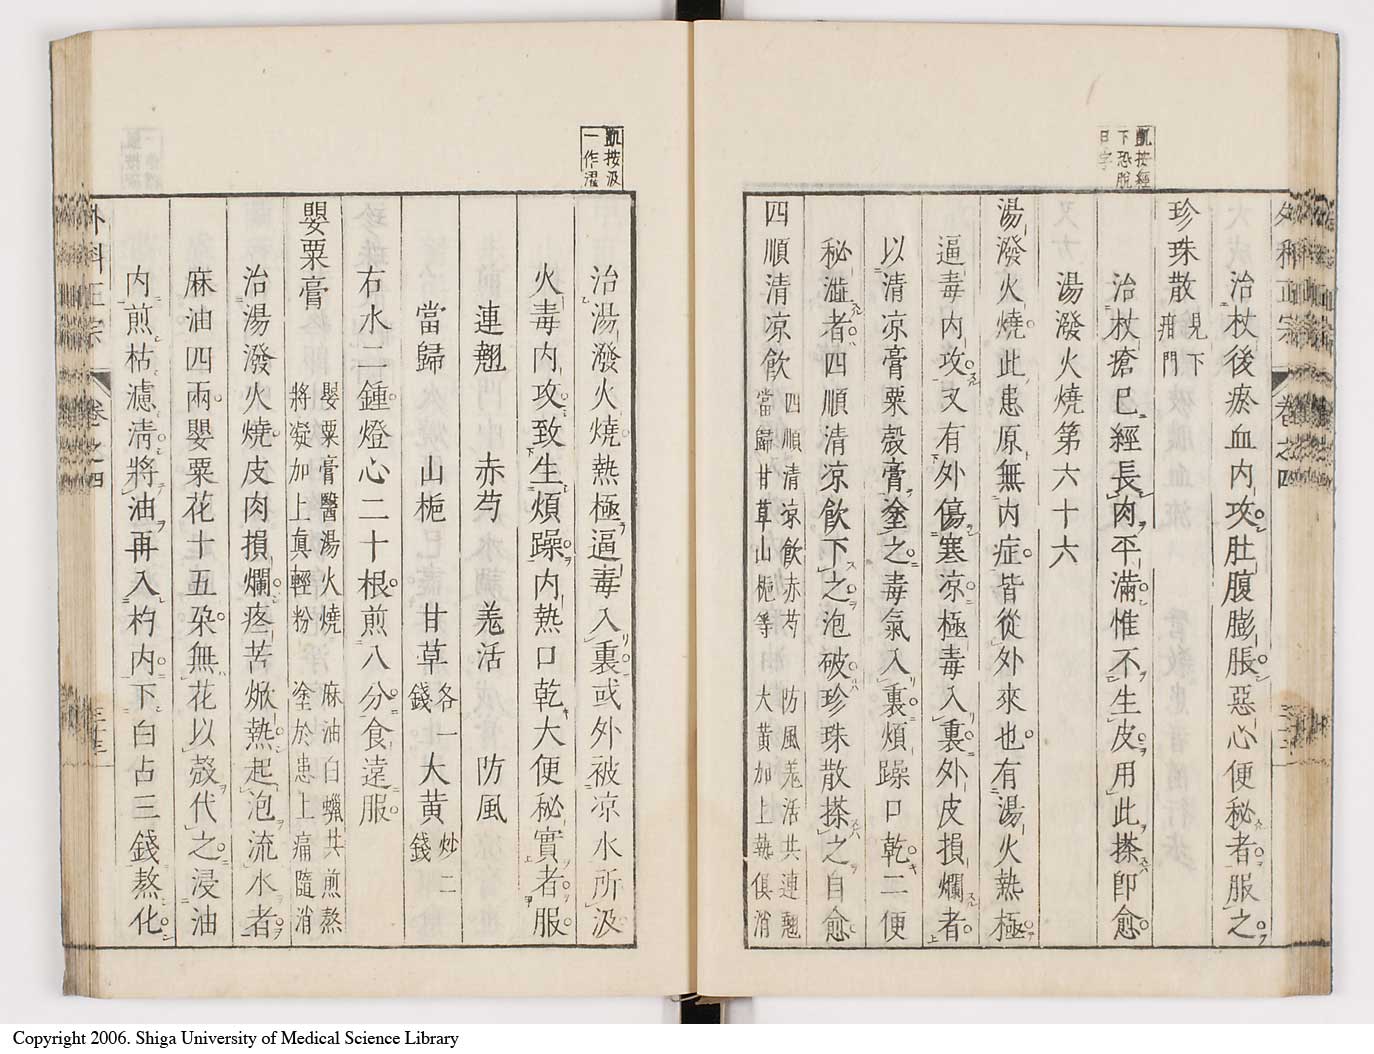 凱按經
下恐脫
日字
治杖後瘀血內攻肚腹膨脹惡心便秘者服之
珍珠散 見下疳門
治杖瘡已經長肉平滿惟不生皮用此搽卽愈
湯潑火燒第六十六
湯潑火燒此患原無內症皆從外來也有湯火熱極
逼毒內攻又有外傷寒凉極毒入裏外皮損爛者
以清凉膏粟殼膏塗之毒氣入裏煩躁口乾二便
秘澁者四順清凉飮下之泡破珍珠散搽之自愈
四順清凉飮 四順清凉飮赤芍 防風羗活共連翹
當歸甘草山梔等 大黃加上熱俱消
外科正宗 卷之四
凱按汲
一作濯
治湯潑火燒熱極逼毒入裏或外被凉水所汲
火毒內攻致生煩躁內熱口乾大便秘實者服
連翹 赤芍 羗活 防風
當歸 山梔 甘草各一錢 大黃炒二錢
右水二鍾燈心二十根煎八分食遠服
罌粟膏 罌粟膏醫湯火燒 麻油白蠟共煎熬
將凝加上眞輕粉 塗於患上痛隨消
治湯潑火燒皮肉損爛疼苦焮熱起泡流水者
麻油四兩罌粟花十五朶無花以殼代之浸油
內煎枯濾淸將油再入杓內下白占三錢熬化
外科正宗 卷之四 三十三